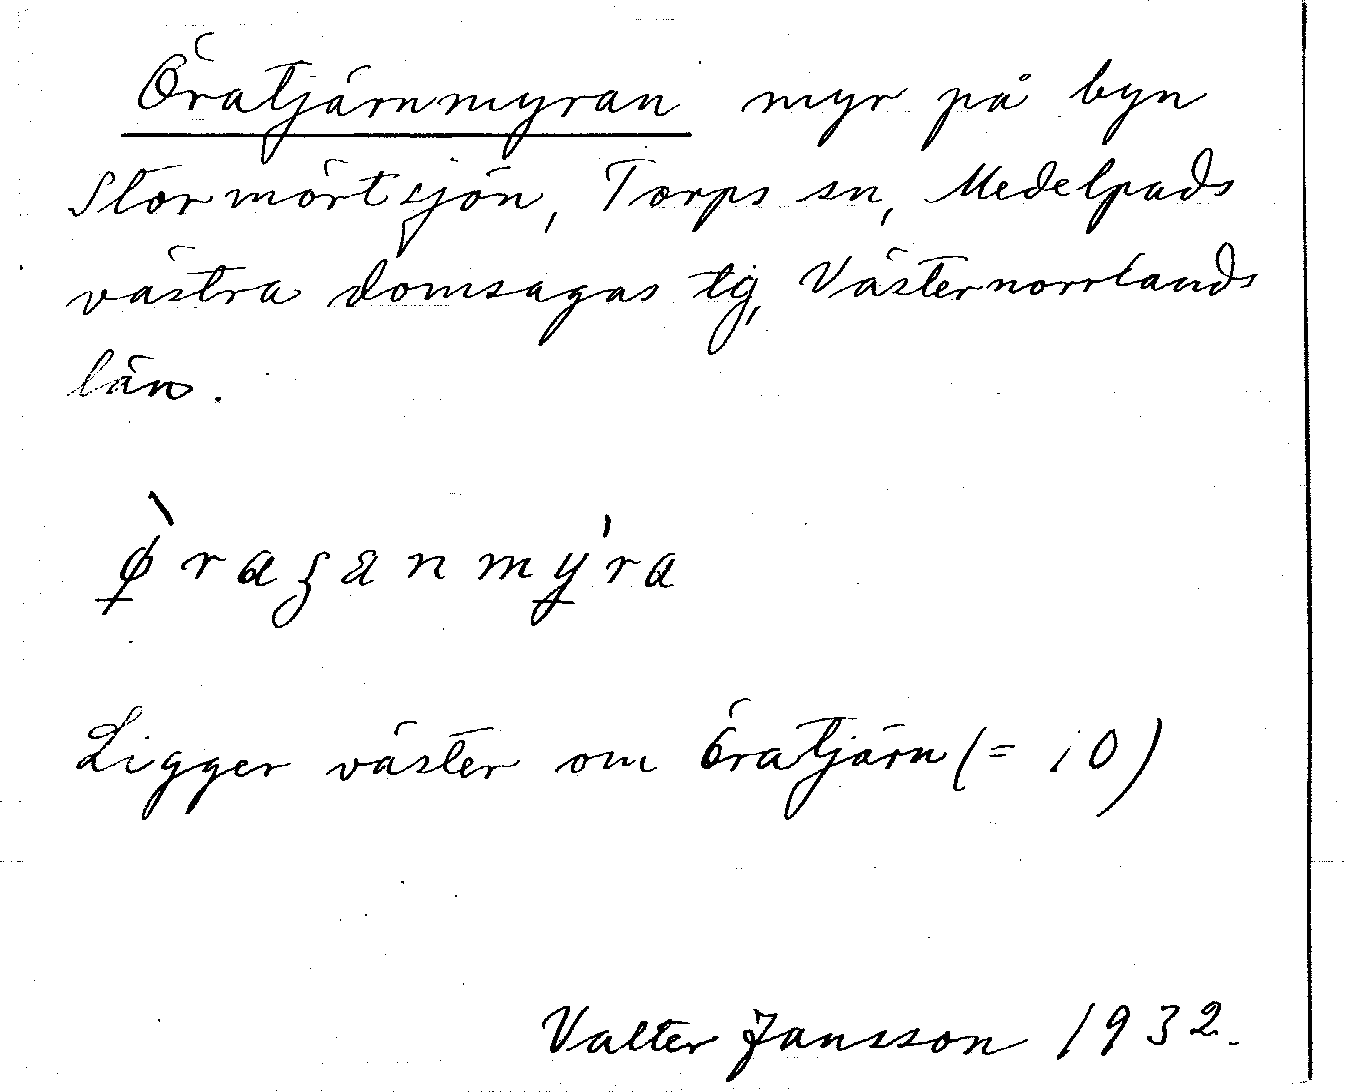 Öratjärnmyran myr på byn
Stormörtsjön, Torps sn, Medelpads
västra domsagas tg, Västernorrlands
län.
Ligger väster om Öratjärn (= 10)
Valter Jansson 1932.